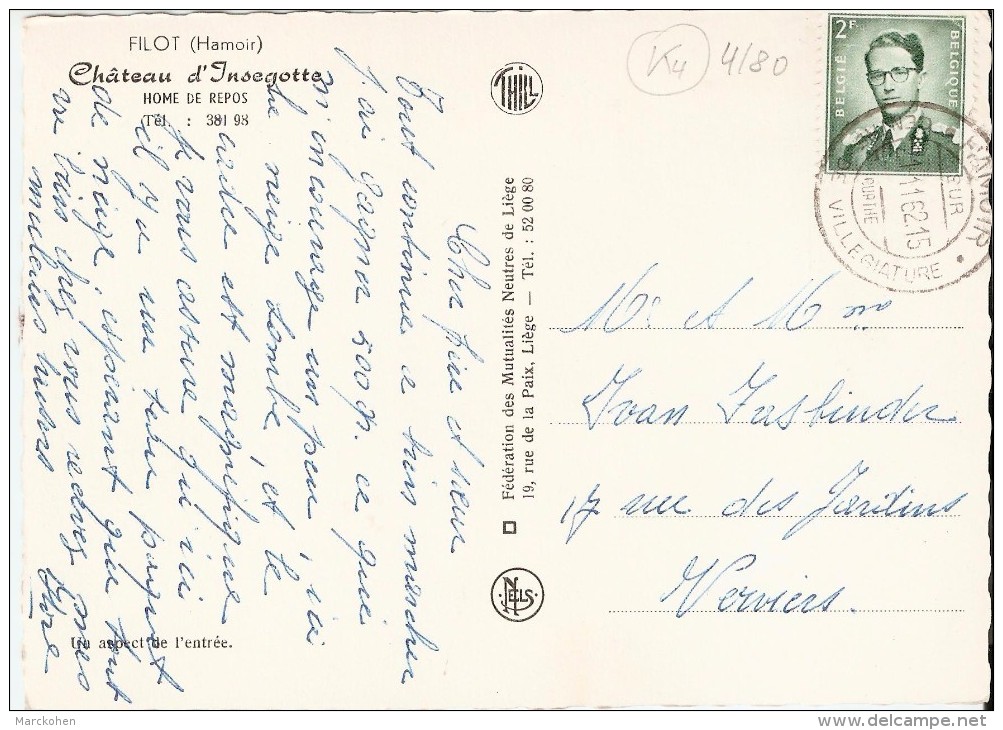 FILOT (Hamoir)
Château d'Insegotte
HOME DE REPOS
Tél. : 381 98
Cher frère et sœur
Tout continue a bien marcher
j'ai gagner 500 gr. ce qui
m'encourage un peu, ici
la neige tombe, et le
cadre est magnifique
je vous assure qu'ici
il y a un tapis
de neige, espérant que tout
va bien chez vous recevez mes
meilleurs
Un aspect de l'entrée.
THILL
Fédération des Mutualités Neutres de Liège
19, rue de la Paix, Liège — Tél. : 52 00 80
NELS
K4
4/80
2F
BELGIË
BELGIQUE
HAMOIR
11 62 15
OURTHE
DE VILLEGIATURE
Mr et Mme
Ivan Fasbinder
17 rue des Jardins
Verviers.
Marckohen
delcampe.net